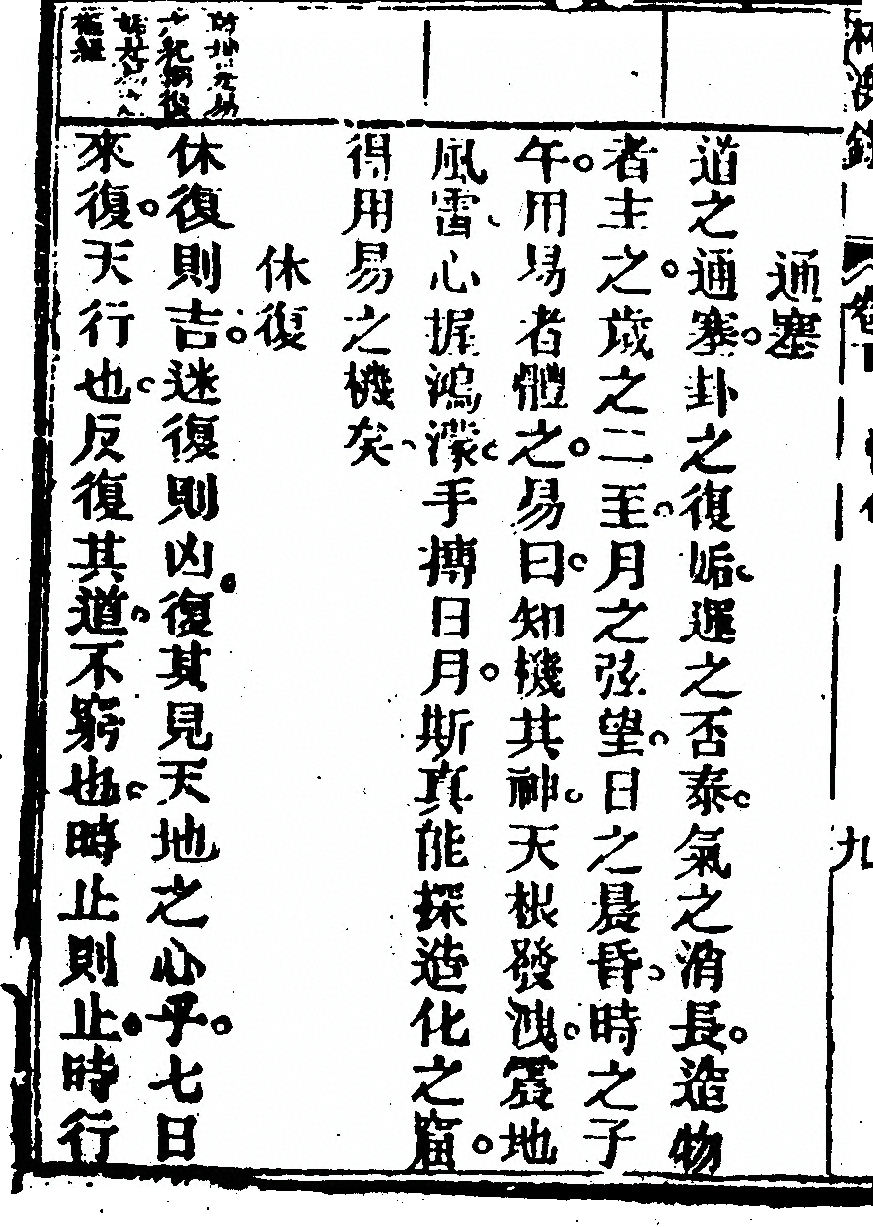 通塞
道之通塞。卦之復姤。運之否泰。氣之消長。造物
者主之。歲之二至。月之弦望。日之晨昏。時之子
午。用易者體之。易曰。知機其神。天根發洩。震地
風雷、心握鴻濛。手摶日月。斯真能探造化之窟。
得用易之機矣、
休復
休復則吉。迷復則凶。復其見天地之心乎。七日
來復。天行也。反復其道。不窮也。時止則止。時行
九